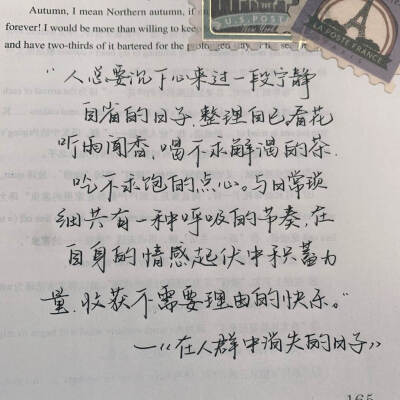 Autumn, I mean Northern autumn, if
forever! I would be more than willing to kee
and have two-thirds of it bartered for the
U.S. POST
LA POSTE FRANCE
“人总要沉下心来过一段宁静
自省的日子,整理自己.看花
听雨闻香，喝不求解渴的茶.
吃不求饱的点心。与日常琐
细共有一种呼吸的节奏,在
自身的情感起伏中积蓄力
量,收获不需要理由的快乐。”
—《在人群中消失的日子》
165